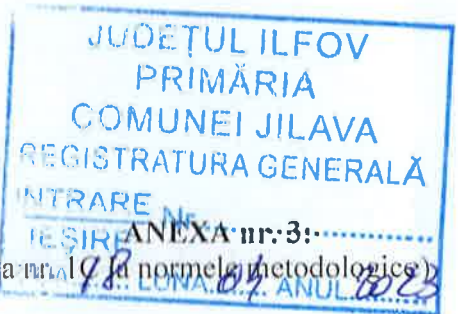 JUDEȚUL ILFOV
PRIMĂRIA
COMUNEI JILAVA
REGISTRATURA GENERALĂ
INTRARE Nr.
IEȘIRE ANEXA nr. 3:
nr. 19 la normele metodologice)
LUNA 04 ANUL 2023